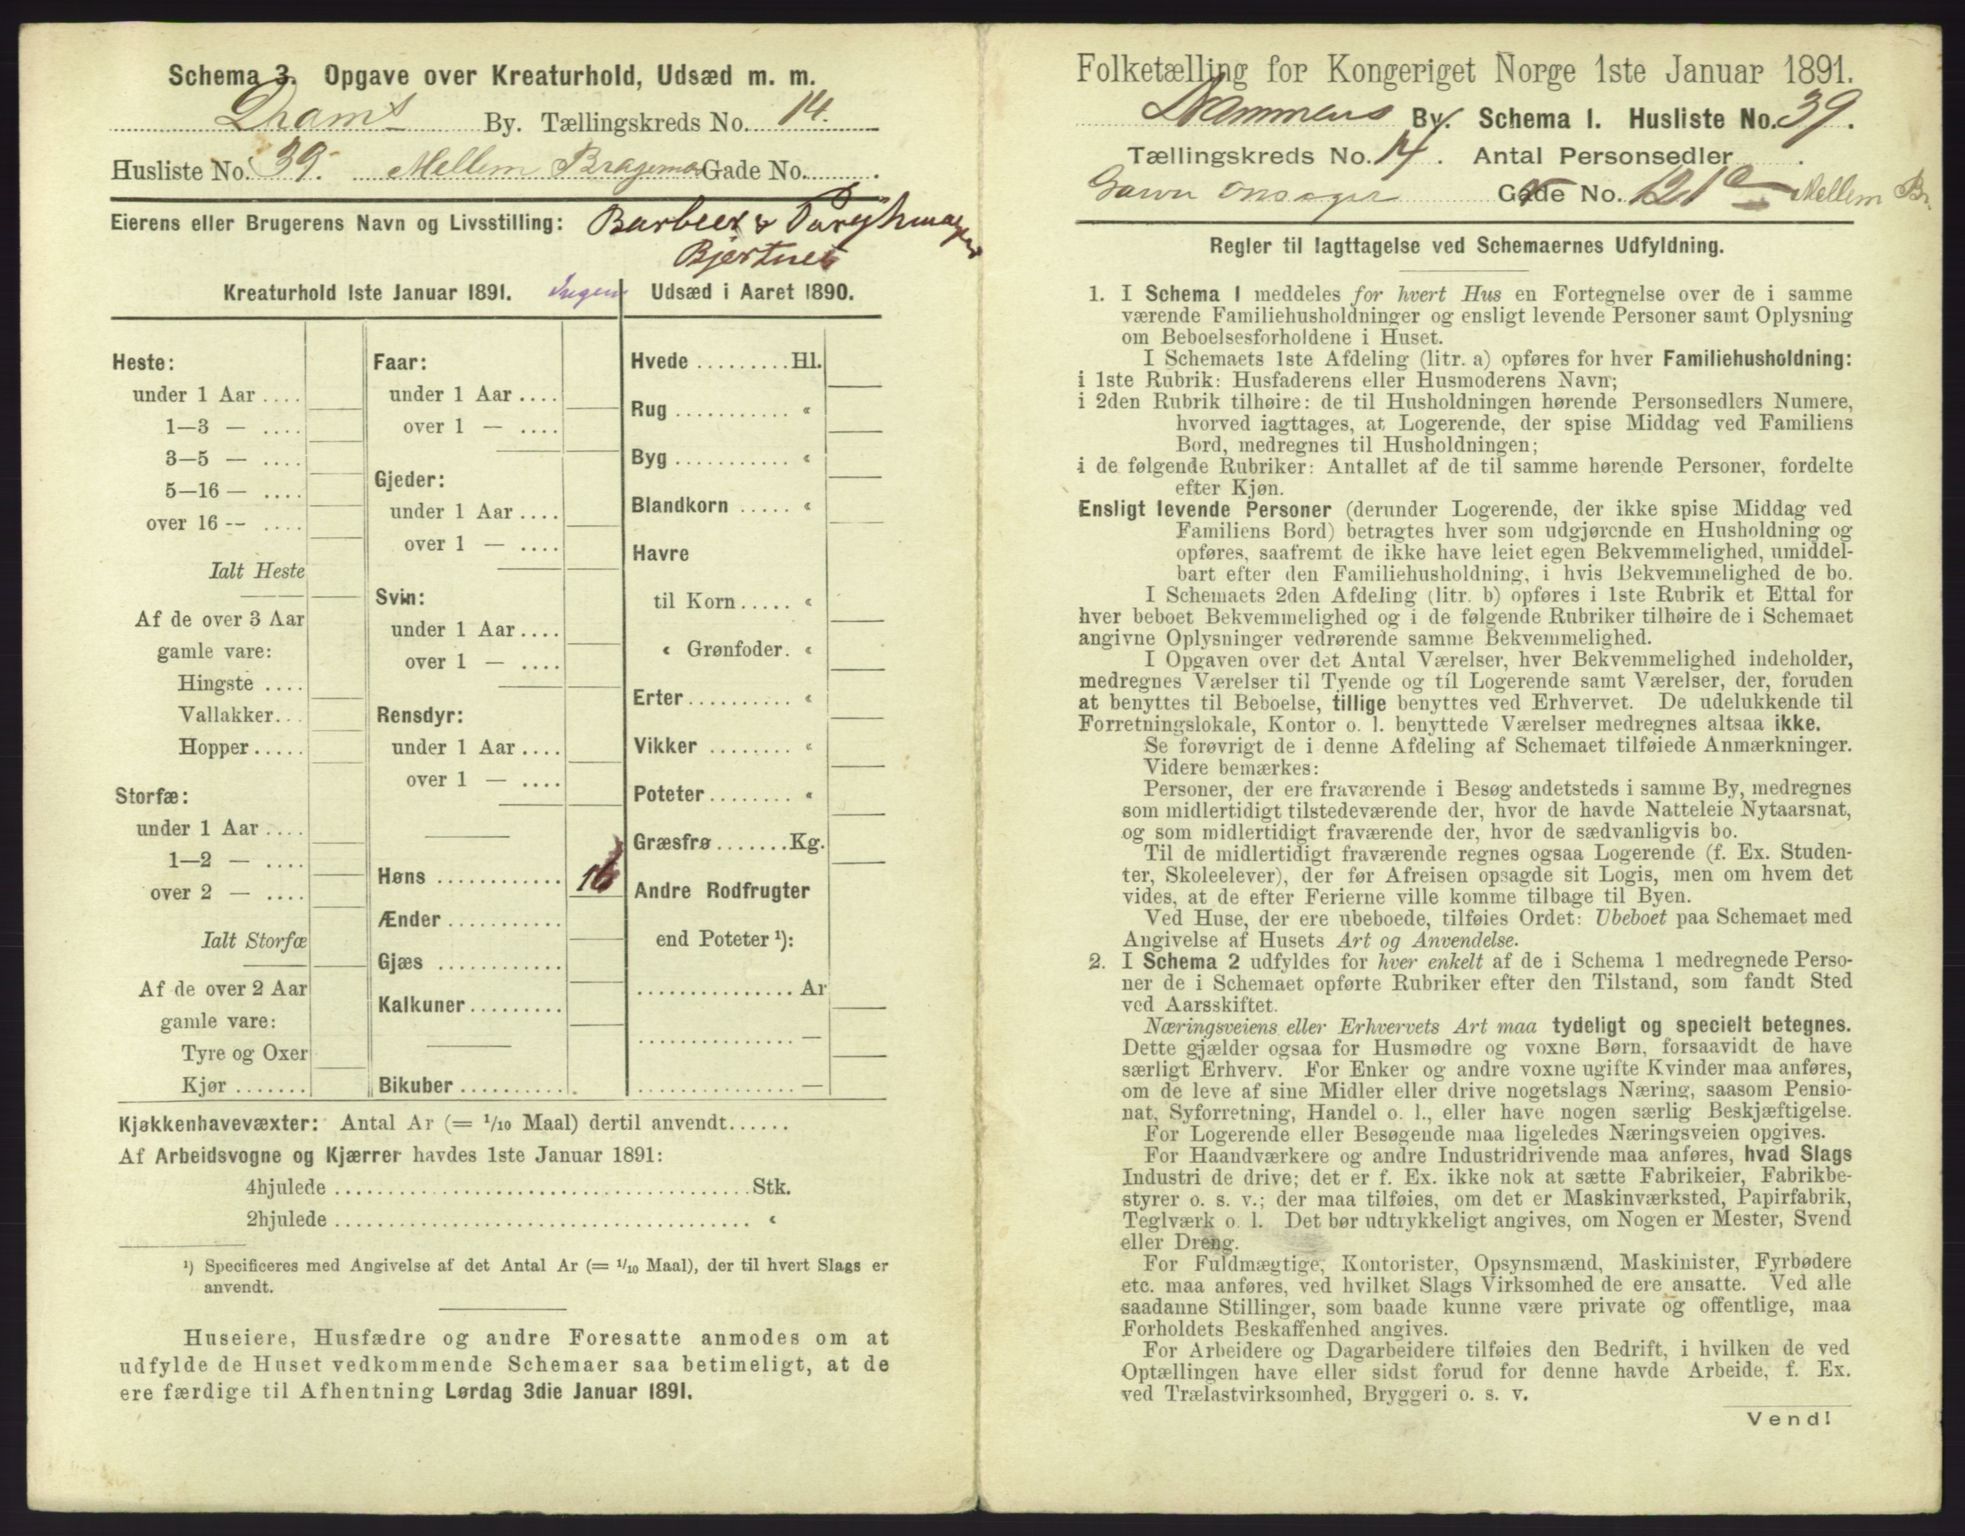 Schema 3. Opgave over Kreaturhold, Udsæd m. m.
Drams By. Tællingskreds No. 14.
Husliste No. 39. Mellem Bragernæs Gade No.
Eierens eller Brugerens Navn og Livsstilling: Barbeer &
Bjertnes
Kreaturhold 1ste Januar 1891. Ingen
Heste:
under 1 Aar ....
1—3 — ....
3—5 — ....
5—16 — ....
over 16 -- ....
Ialt Heste
Af de over 3 Aar
gamle vare:
Hingste ....
Vallakker...
Hopper.....
Storfæ:
under 1 Aar ....
1—2 — ....
over 2 — ....
Ialt Storfæ
Af de over 2 Aar
gamle vare:
Tyre og Oxer
Kjør .......
Faar:
under 1 Aar ....
over 1 — ....
Gjeder:
under 1 Aar ....
over 1 — ....
Svin:
under 1 Aar ....
over 1 — ....
Rensdyr:
under 1 Aar ....
over 1 — ....
Høns ............ 16
Ænder ...........
Gjæs ............
Kalkuner.........
Bikuber ..........
Udsæd i Aaret 1890.
Hvede .........Hl.
Rug ........... «
Byg ........... «
Blandkorn ..... «
Havre
til Korn ..... «
« Grønfoder. «
Erter.......... «
Vikker ........ «
Poteter........ «
Græsfrø.......Kg.
Andre Rodfrugter
end Poteter ¹):
...............Ar
............... —
............... —
Kjøkkenhavevæxter: Antal Ar (= 1/10 Maal) dertil anvendt......
Af Arbeidsvogne og Kjærrer havdes 1ste Januar 1891:
4hjulede ........................................Stk.
2hjulede ........................................ «
¹) Specificeres med Angivelse af det Antal Ar (= 1/10 Maal), der til hvert Slags er
anvendt.
Huseiere, Husfædre og andre Foresatte anmodes om at
udfylde de Huset vedkommende Schemaer saa betimeligt, at de
ere færdige til Afhentning Lørdag 3die Januar 1891.
Folketælling for Kongeriget Norge 1ste Januar 1891.
Drammens By. Schema I. Husliste No. 39.
Tællingskreds No. 14. Antal Personsedler .
Gade No. 121a Mellem Br.
Regler til Iagttagelse ved Schemaernes Udfyldning.
1. I Schema I meddeles for hvert Hus en Fortegnelse over de i samme
værende Familiehusholdninger og ensligt levende Personer samt Oplysning
om Beboelsesforholdene i Huset.
I Schemaets 1ste Afdeling (litr. a) opføres for hver Familiehusholdning:
i 1ste Rubrik: Husfaderens eller Husmoderens Navn;
i 2den Rubrik tilhøire: de til Husholdningen hørende Personsedlers Numere,
hvorved iagttages, at Logerende, der spise Middag ved Familiens
Bord, medregnes til Husholdningen;
i de følgende Rubriker: Antallet af de til samme hørende Personer, fordelte
efter Kjøn.
Ensligt levende Personer (derunder Logerende, der ikke spise Middag ved
Familiens Bord) betragtes hver som udgjørende en Husholdning og
opføres, saafremt de ikke have leiet egen Bekvemmelighed, umiddel-
bart efter den Familiehusholdning, i hvis Bekvemmelighed de bo.
I Schemaets 2den Afdeling (litr. b) opføres i 1ste Rubrik et Ettal for
hver beboet Bekvemmelighed og i de følgende Rubriker tilhøire de i Schemaet
angivne Oplysninger vedrørende samme Bekvemmelighed.
I Opgaven over det Antal Værelser, hver Bekvemmelighed indeholder,
medregnes Værelser til Tyende og til Logerende samt Værelser, der, foruden
at benyttes til Beboelse, tillige benyttes ved Erhvervet. De udelukkende til
Forretningslokale, Kontor o. l. benyttede Værelser medregnes altsaa ikke.
Se forøvrigt de i denne Afdeling af Schemaet tilføiede Anmærkninger.
Videre bemærkes:
Personer, der ere fraværende i Besøg andetsteds i samme By, medregnes
som midlertidigt tilstedeværende der, hvor de havde Natteleie Nytaarsnat,
og som midlertidigt fraværende der, hvor de sædvanligvis bo.
Til de midlertidigt fraværende regnes ogsaa Logerende (f. Ex. Studen-
ter, Skoleelever), der før Afreisen opsagde sit Logis, men om hvem det
vides, at de efter Ferierne ville komme tilbage til Byen.
Ved Huse, der ere ubeboede, tilføies Ordet: Ubeboet paa Schemaet med
Angivelse af Husets Art og Anvendelse.
2. I Schema 2 udfyldes for hver enkelt af de i Schema 1 medregnede Perso-
ner de i Schemaet opførte Rubriker efter den Tilstand, som fandt Sted
ved Aarsskiftet.
Næringsveiens eller Erhvervets Art maa tydeligt og specielt betegnes.
Dette gjælder ogsaa for Husmødre og voxne Børn, forsaavidt de have
særligt Erhverv. For Enker og andre voxne ugifte Kvinder maa anføres,
om de leve af sine Midler eller drive nogetslags Næring, saasom Pensio-
nat, Syforretning, Handel o. l., eller have nogen særlig Beskjæftigelse.
For Logerende eller Besøgende maa ligeledes Næringsveien opgives.
For Haandværkere og andre Industridrivende maa anføres, hvad Slags
Industri de drive; det er f. Ex. ikke nok at sætte Fabrikeier, Fabrikbe-
styrer o. s. v.; der maa tilføies, om det er Maskinværksted, Papirfabrik,
Teglværk o. l. Det bør udtrykkeligt angives, om Nogen er Mester, Svend
eller Dreng.
For Fuldmægtige, Kontorister, Opsynsmænd, Maskinister, Fyrbødere
etc. maa anføres, ved hvilket Slags Virksomhed de ere ansatte. Ved alle
saadanne Stillinger, som baade kunne være private og offentlige, maa
Forholdets Beskaffenhed angives.
For Arbeidere og Dagarbeidere tilføies den Bedrift, i hvilken de ved
Optællingen have eller sidst forud for denne havde Arbeide, f. Ex.
ved Trælastvirksomhed, Bryggeri o. s. v.
Vend!